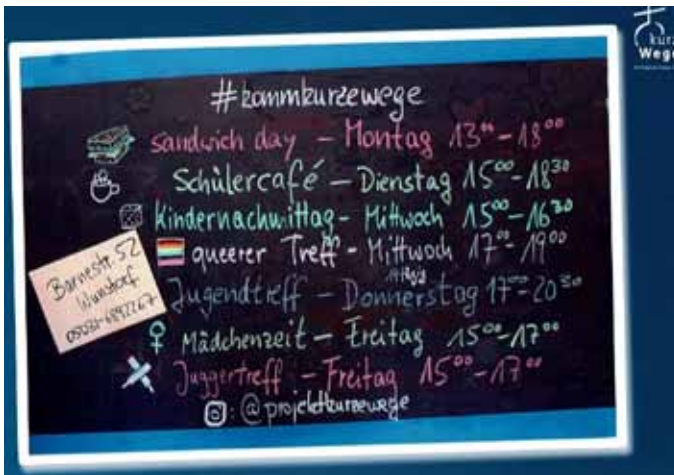 kurze
Wege
#kommkurzewege
sandwich day – Montag 13⁰⁰–18⁰⁰
Schülercafé – Dienstag 15⁰⁰–18³⁰
Kindernachmittag – Mittwoch 15⁰⁰–16³⁰
queerer Treff – Mittwoch 17⁰⁰–19⁰⁰
Jugendtreff – Donnerstag 17⁰⁰–20³⁰
Mädchenzeit – Freitag 15⁰⁰–17⁰⁰
Juggertreff – Freitag 15⁰⁰–17⁰⁰
: @projektkurzewege
Barnestr. 52
Wunstorf
05031-6892267